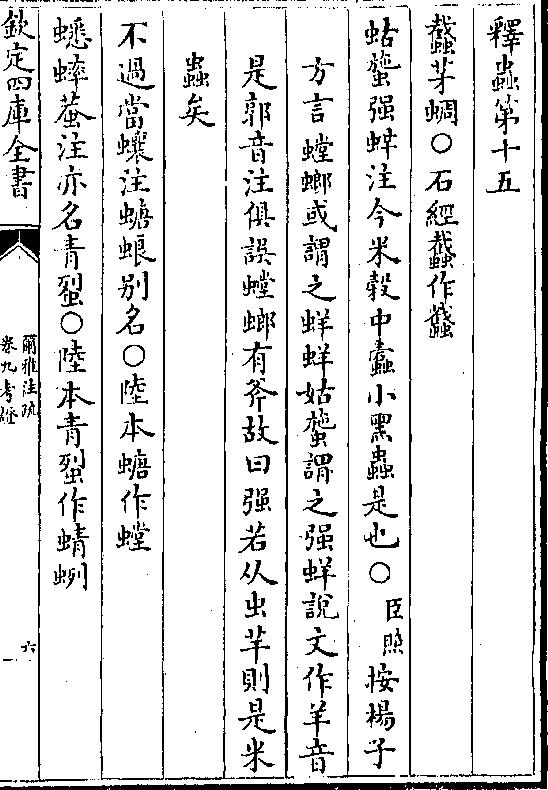 釋蟲第十五
蠽茅蜩○石經蠽作䘁
蛄䗐强蛘注今米穀中蠹小黑蟲是也○臣照按楊子
方言螳螂或謂之蛘蛘姑䗐謂之强蛘說文作羊音
是郭音注俱誤螳螂有斧故曰强若从虫芊則是米
蟲矣
不過當蠰注螗蜋别名○陸本螗作螳
蟋蟀蛬注亦名青𧊿○陸本青𧊿作蜻蛚
欽定四庫全書
爾雅注疏
卷九考證
六